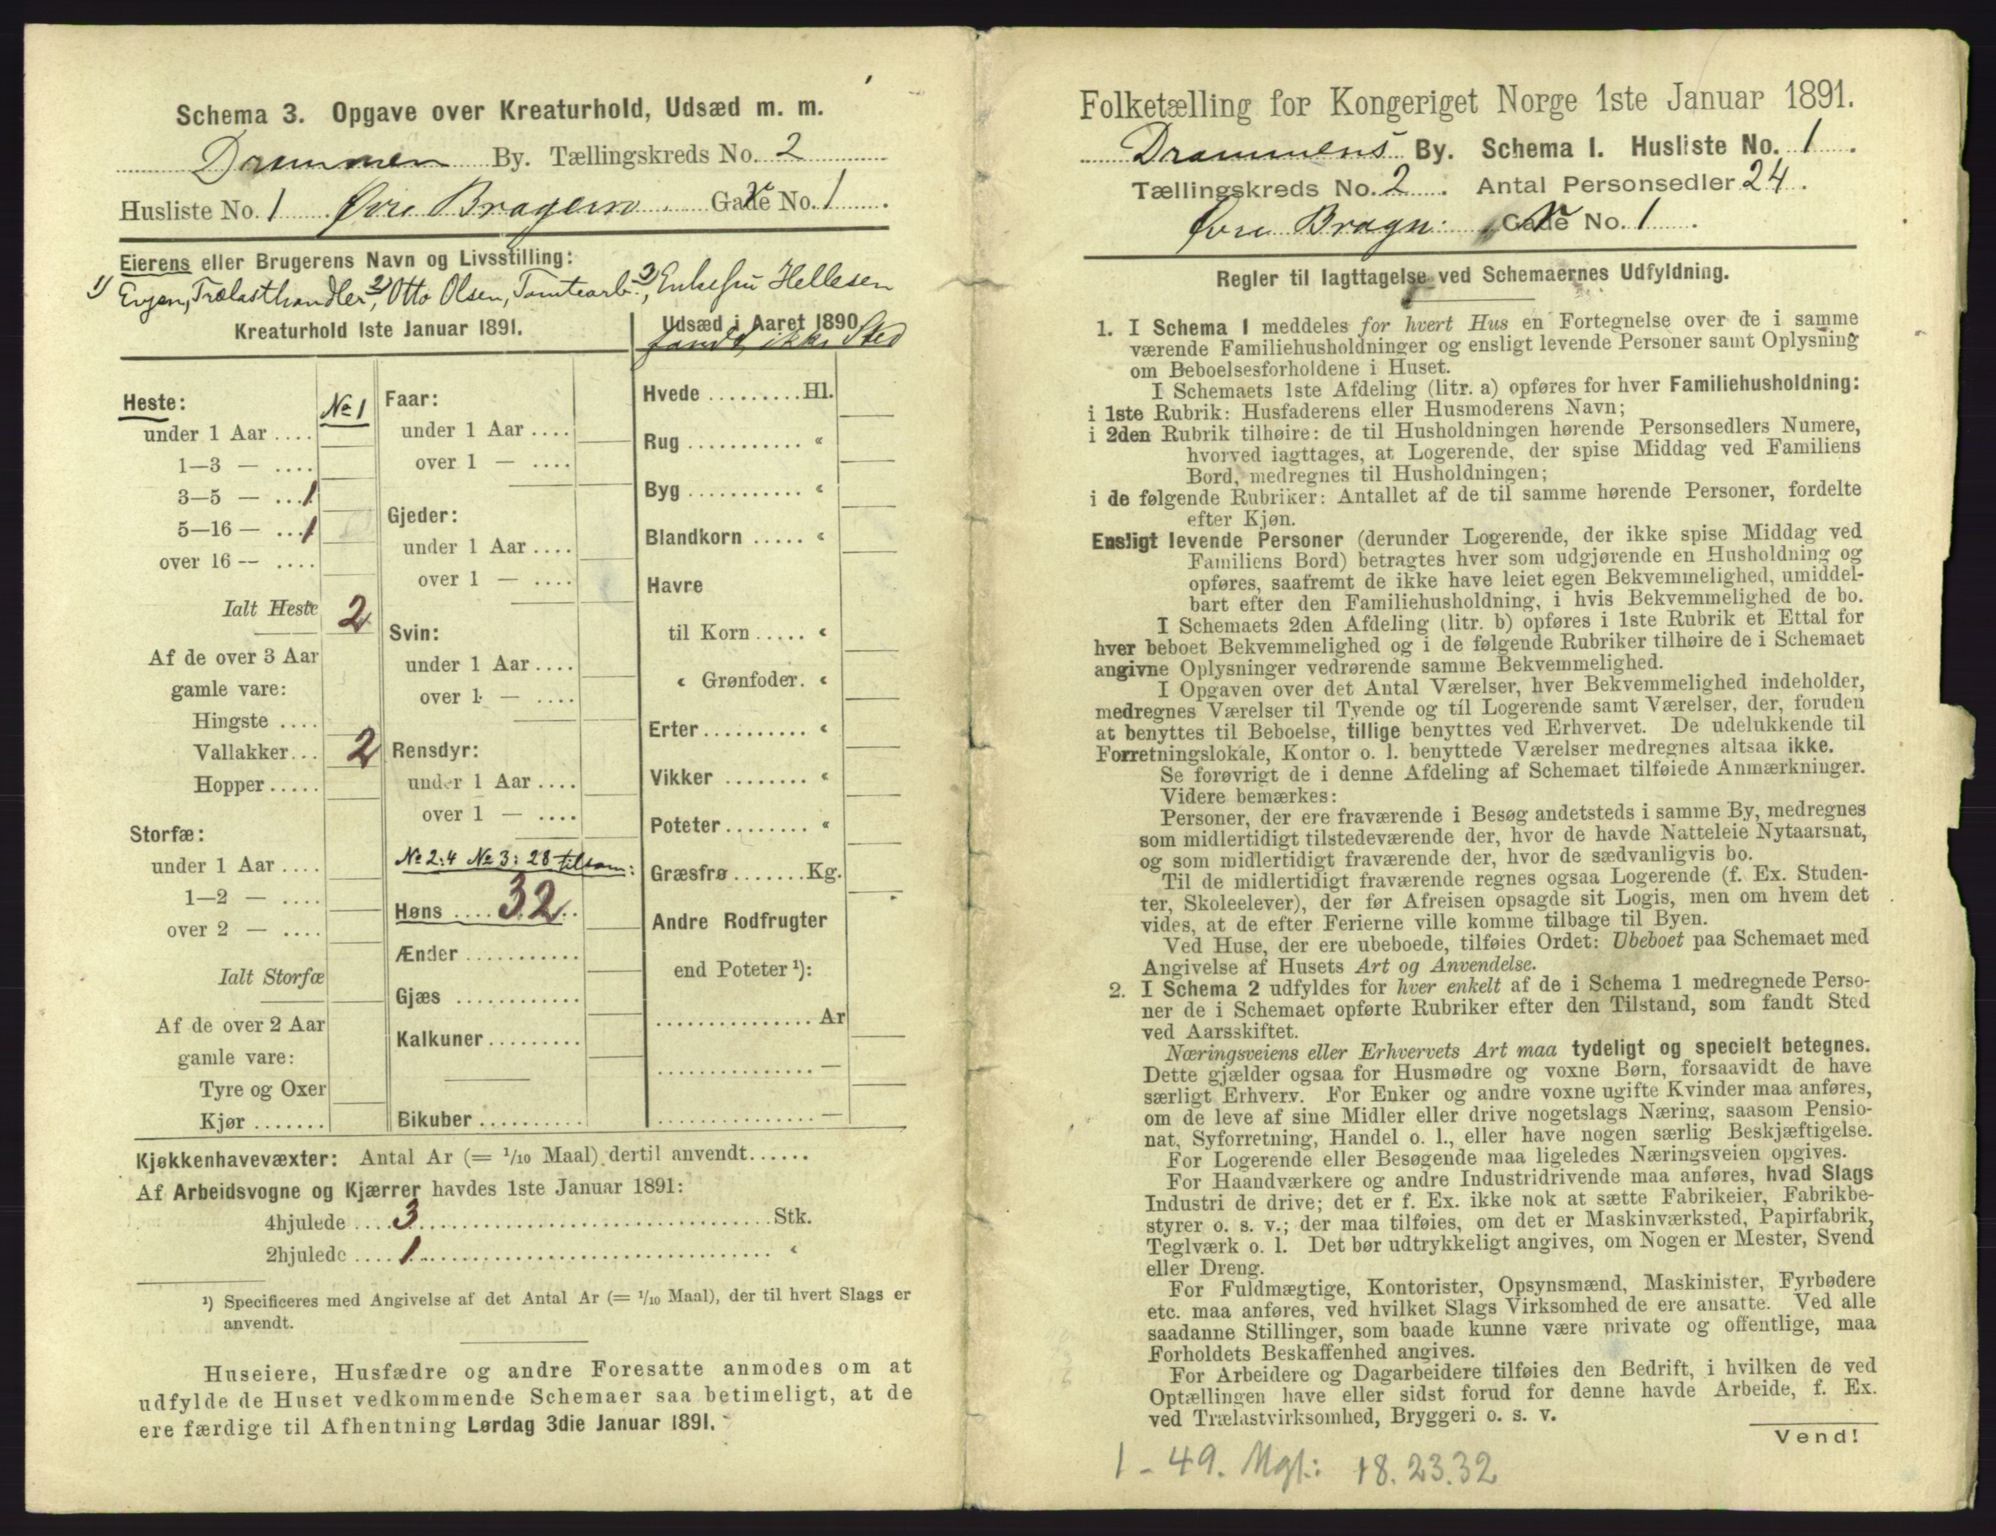 Schema 3. Opgave over Kreaturhold, Udsæd m. m.
Drammen By. Tællingskreds No. 2
Husliste No. 1 Øvre Bragern Gade No. 1
Eierens eller Brugerens Navn og Livsstilling:
1) Evjen, Trælasthandler, 2) Otto Olsen, Tomtearb., 3) Enkefru Hellesen
Kreaturhold 1ste Januar 1891.
Udsæd i Aaret 1890
fandt ikke Sted
Heste: No 1
under 1 Aar ....
1—3 — ....
3—5 — ... 1
5—16 — ... 1
over 16 — ....
Ialt Heste 2
Af de over 3 Aar
gamle vare:
Hingste ....
Vallakker... 2
Hopper.....
Storfæ:
under 1 Aar ....
1—2 — ....
over 2 — ....
Ialt Storfæ
Af de over 2 Aar
gamle vare:
Tyre og Oxer
Kjør .......
Faar:
under 1 Aar ....
over 1 — ....
Gjeder:
under 1 Aar ....
over 1 — ....
Svin:
under 1 Aar ....
over 1 — ....
Rensdyr:
under 1 Aar ....
over 1 — ....
No 2: 4 No 3: 28 tilsam:
Høns .... 32
Ænder ...........
Gjæs ............
Kalkuner.........
Bikuber ..........
Hvede .........Hl.
Rug ........... “
Byg ........... “
Blandkorn ..... “
Havre
til Korn ..... “
“ Grønfoder. “
Erter.......... “
Vikker ........ “
Poteter........ “
Græsfrø .......Kg.
Andre Rodfrugter
end Poteter ¹):
............... Ar
............... —
............... —
Kjøkkenhavevæxter: Antal Ar (= 1/10 Maal) dertil anvendt......
Af Arbeidsvogne og Kjærrer havdes 1ste Januar 1891:
4hjulede .... 3 .................................. Stk.
2hjulede .... 1 .................................. “
¹) Specificeres med Angivelse af det Antal Ar (= 1/10 Maal), der til hvert Slags er
anvendt.
Huseiere, Husfædre og andre Foresatte anmodes om at
udfylde de Huset vedkommende Schemaer saa betimeligt, at de
ere færdige til Afhentning Lørdag 3die Januar 1891.
Folketælling for Kongeriget Norge 1ste Januar 1891.
Drammens By. Schema I. Husliste No. 1
Tællingskreds No. 2. Antal Personsedler 24.
Øvre Bragn. Gade No. 1.
Regler til Iagttagelse ved Schemaernes Udfyldning.
1. I Schema 1 meddeles for hvert Hus en Fortegnelse over de i samme
værende Familiehusholdninger og ensligt levende Personer samt Oplysning
om Beboelsesforholdene i Huset.
I Schemaets 1ste Afdeling (litr. a) opføres for hver Familiehusholdning:
i 1ste Rubrik: Husfaderens eller Husmoderens Navn;
i 2den Rubrik tilhøire: de til Husholdningen hørende Personsedlers Numere,
hvorved iagttages, at Logerende, der spise Middag ved Familiens
Bord, medregnes til Husholdningen;
i de følgende Rubriker: Antallet af de til samme hørende Personer, fordelte
efter Kjøn.
Ensligt levende Personer (derunder Logerende, der ikke spise Middag ved
Familiens Bord) betragtes hver som udgjørende en Husholdning og
opføres, saafremt de ikke have leiet egen Bekvemmelighed, umiddel-
bart efter den Familiehusholdning, i hvis Bekvemmelighed de bo.
I Schemaets 2den Afdeling (litr. b) opføres i 1ste Rubrik et Ettal for
hver beboet Bekvemmelighed og i de følgende Rubriker tilhøire de i Schemaet
angivne Oplysninger vedrørende samme Bekvemmelighed.
I Opgaven over det Antal Værelser, hver Bekvemmelighed indeholder,
medregnes Værelser til Tyende og til Logerende samt Værelser, der, foruden
at benyttes til Beboelse, tillige benyttes ved Erhvervet. De udelukkende til
Forretningslokale, Kontor o. l. benyttede Værelser medregnes altsaa ikke.
Se forøvrigt de i denne Afdeling af Schemaet tilføiede Anmærkninger.
Videre bemærkes:
Personer, der ere fraværende i Besøg andetsteds i samme By, medregnes
som midlertidigt tilstedeværende der, hvor de havde Natteleie Nytaarsnat,
og som midlertidigt fraværende der, hvor de sædvanligvis bo.
Til de midlertidigt fraværende regnes ogsaa Logerende (f. Ex. Studen-
ter, Skoleelever), der før Afreisen opsagde sit Logis, men om hvem det
vides, at de efter Ferierne ville komme tilbage til Byen.
Ved Huse, der ere ubeboede, tilføies Ordet: Ubeboet paa Schemaet med
Angivelse af Husets Art og Anvendelse.
2. I Schema 2 udfyldes for hver enkelt af de i Schema 1 medregnede Perso-
ner de i Schemaet opførte Rubriker efter den Tilstand, som fandt Sted
ved Aarsskiftet.
Næringsveiens eller Erhvervets Art maa tydeligt og specielt betegnes.
Dette gjælder ogsaa for Husmødre og voxne Børn, forsaavidt de have
særligt Erhverv. For Enker og andre voxne ugifte Kvinder maa anføres,
om de leve af sine Midler eller drive nogetslags Næring, saasom Pensio-
nat, Syforretning, Handel o. l., eller have nogen særlig Beskjæftigelse.
For Logerende eller Besøgende maa ligeledes Næringsveien opgives.
For Haandværkere og andre Industridrivende maa anføres, hvad Slags
Industri de drive; det er f. Ex. ikke nok at sætte Fabrikeier, Fabrikbe-
styrer o. s. v.; der maa tilføies, om det er Maskinværksted, Papirfabrik,
Teglværk o. l. Det bør udtrykkeligt angives, om Nogen er Mester, Svend
eller Dreng.
For Fuldmægtige, Kontorister, Opsynsmænd, Maskinister, Fyrbødere
etc. maa anføres, ved hvilket Slags Virksomhed de ere ansatte. Ved alle
saadanne Stillinger, som baade kunne være private og offentlige, maa
Forholdets Beskaffenhed angives.
For Arbeidere og Dagarbeidere tilføies den Bedrift, i hvilken de ved
Optællingen have eller sidst forud for denne havde Arbeide, f. Ex.
ved Trælastvirksomhed, Bryggeri o. s. v.
Vend!
1 - 49. Mgl.: 18. 23. 32